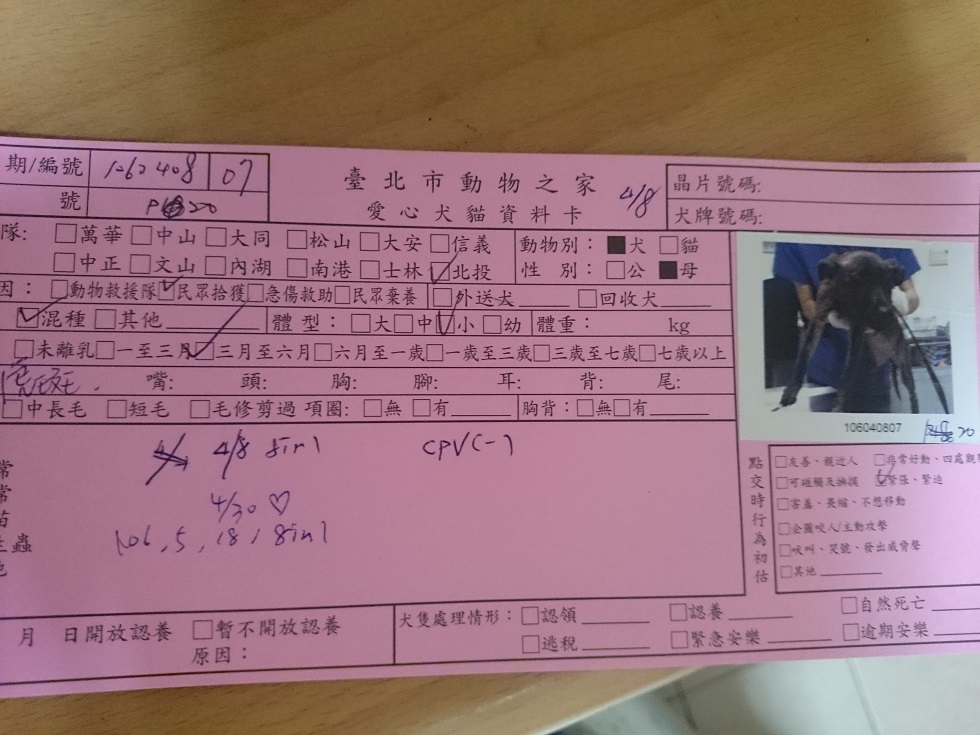 期/編號 07
臺北市動物之家
4/8
晶片號碼:
號 20
愛心犬貓資料卡
犬牌號碼:
隊: □萬華 □中山 □大同 □松山 □大安 □信義 動物別: ■犬 □貓
□中正 □文山 □內湖 □南港 □士林 ☑北投 性 別: □公 ■母
因: □動物救援隊 ☑民眾拾獲 □急傷救助 □民眾棄養 □外送犬 □回收犬
☑混種 □其他 體 型: □大 □中 ☑小 □幼 體重: kg
□未離乳 □一至三月 ☑三月至六月 □六月至一歲 □一歲至三歲 □三歲至七歲 □七歲以上
嘴: 頭: 胸: 腳: 耳: 背: 尾:
□中長毛 □短毛 □毛修剪過 項圈: □無 □有 胸背: □無 □有
106040807
20
常 4/8 8in1 CPV(-)
常
苗 4/30 ♡
生蟲 106,5,18, 8in1
他
點交時行為初估
□友善、親近人 □非常好動、四處觀
□可碰觸及撫摸 ☑緊張、緊迫
□害羞、畏縮、不想移動
□企圖咬人/主動攻擊
□吠叫、哭號、發出威脅聲
□其他
月 日開放認養 □暫不開放認養
原因:
犬隻處理情形: □認領 □認養 □自然死亡
□逃稅 □緊急安樂 □逾期安樂